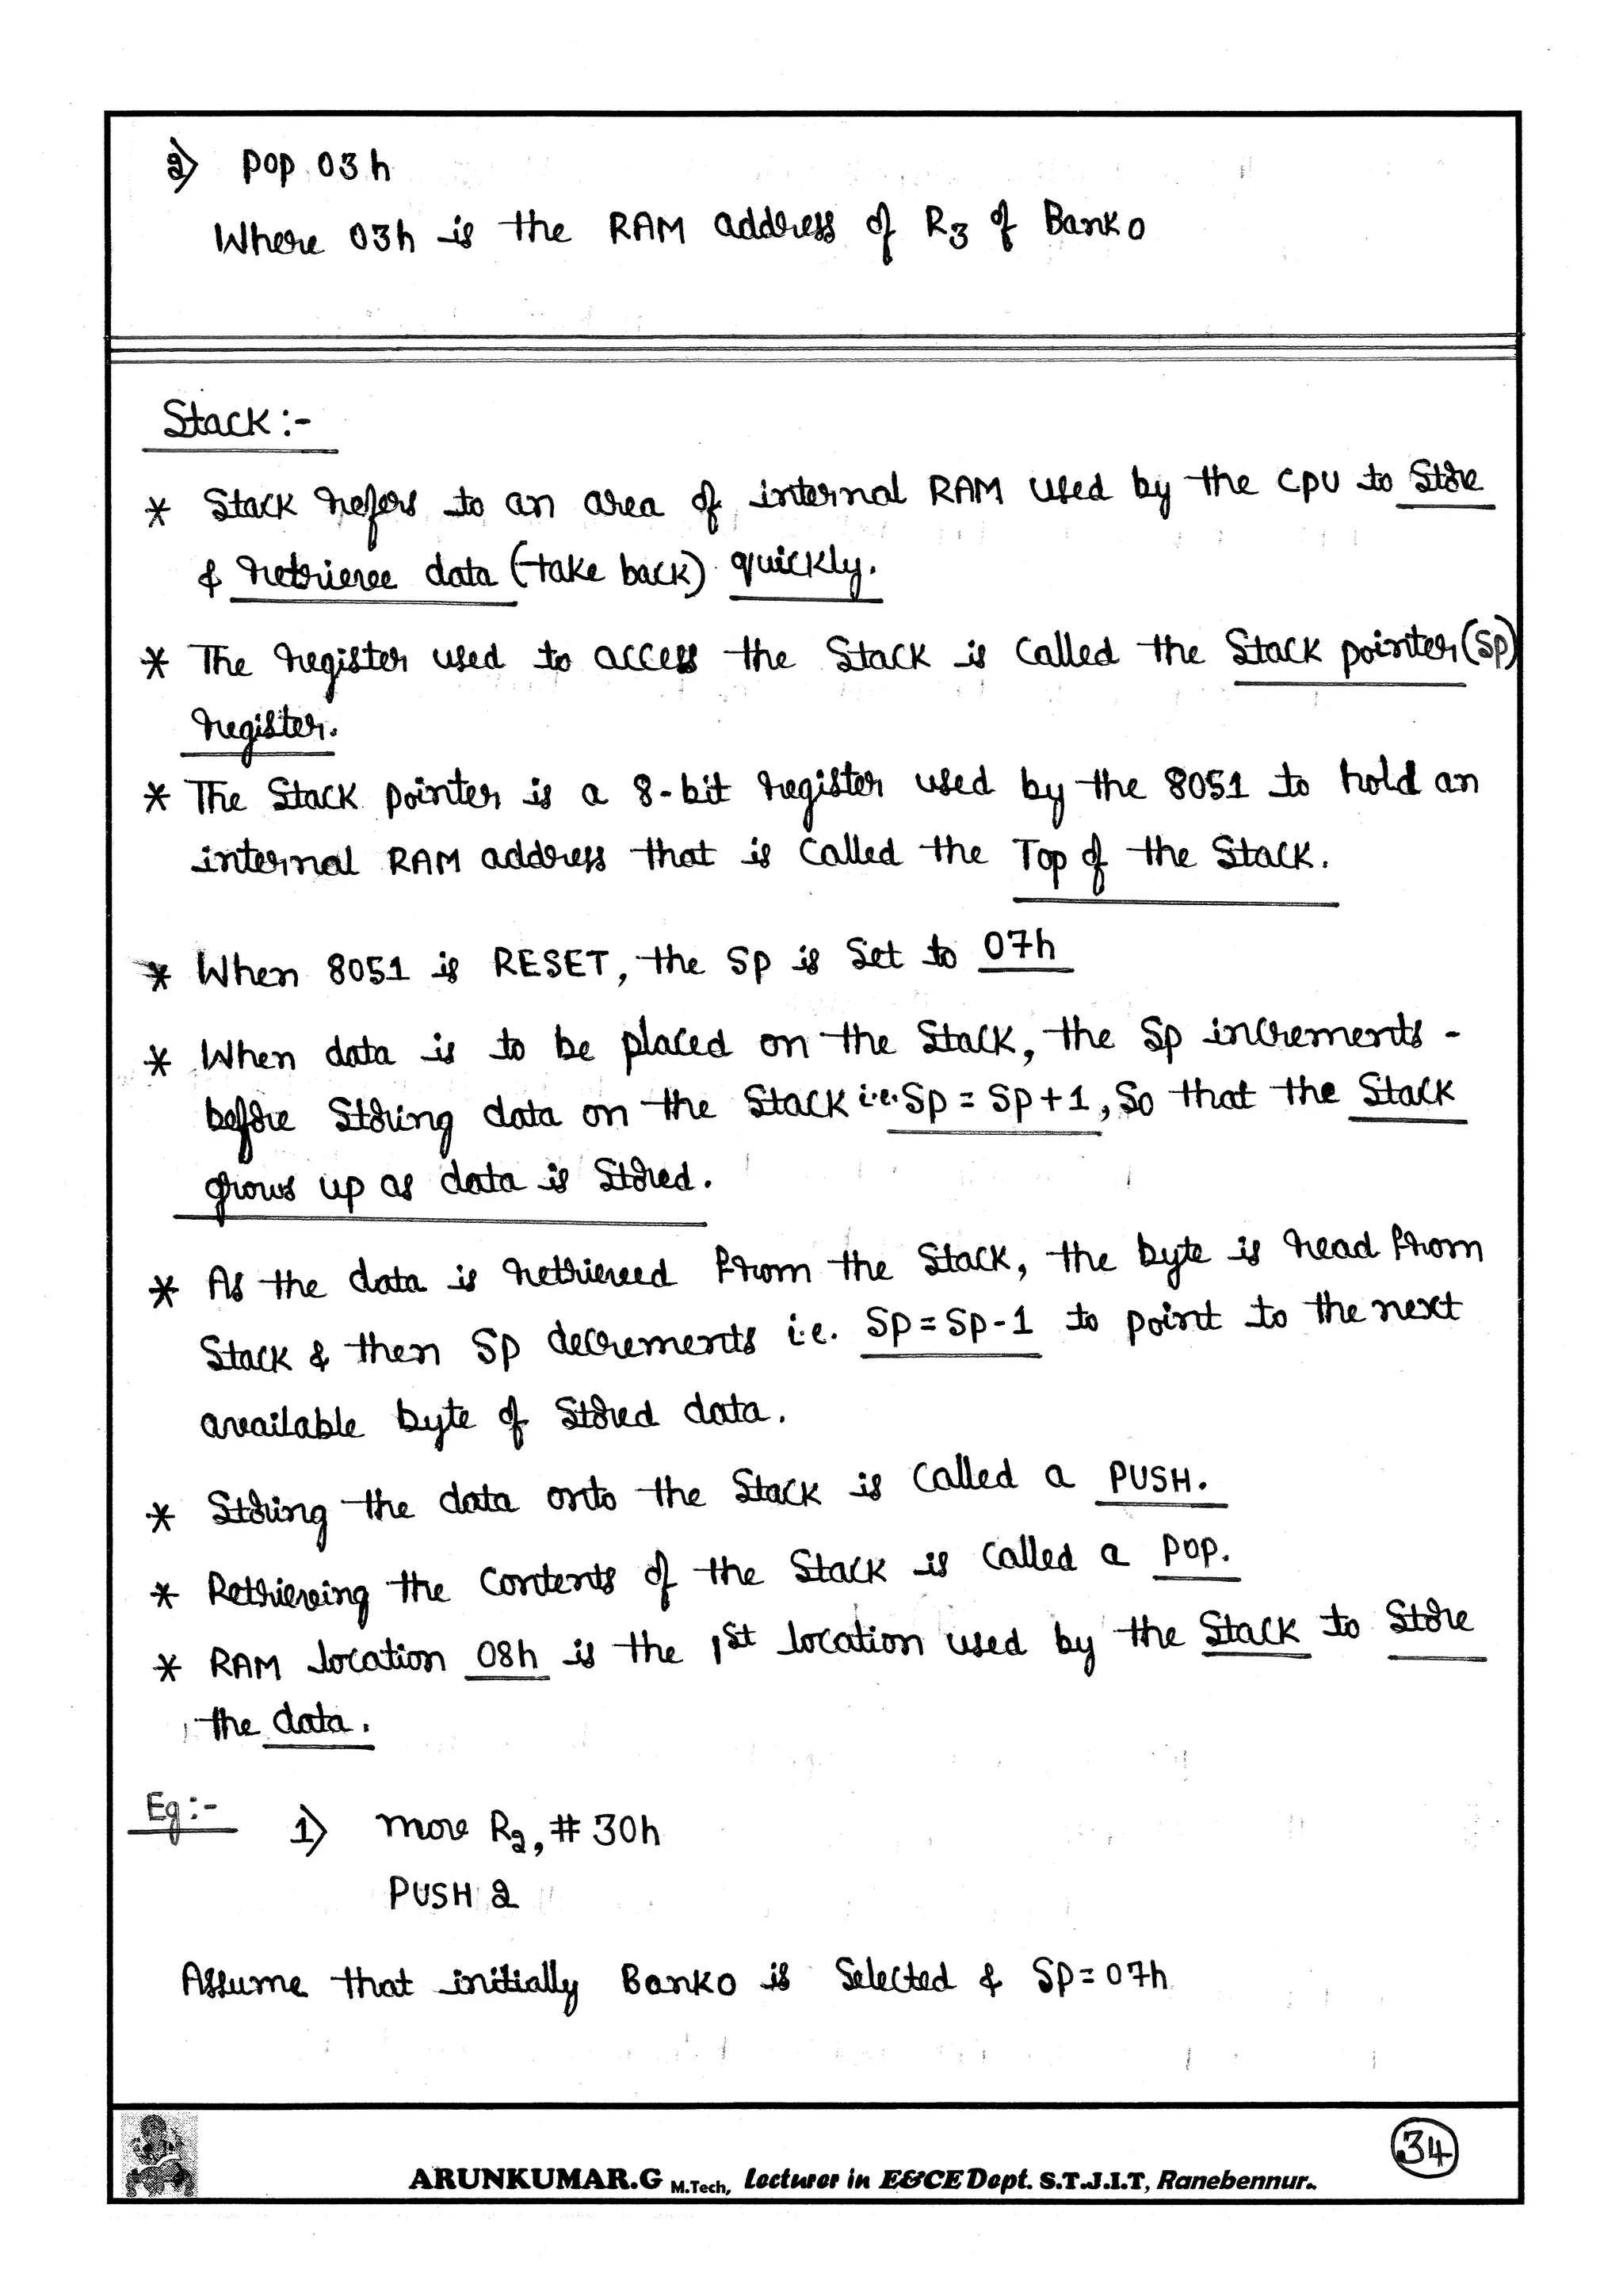 2) POP 03h
Where 03h is the RAM address of R3 of Bank 0
Stack :-
* Stack refers to an area of internal RAM used by the CPU to Store
& retrieve data (take back) quickly.
* The register used to access the Stack is called the Stack pointer (SP)
register.
* The Stack pointer is a 8-bit register used by the 8051 to hold an
internal RAM address that is called the Top of the Stack.
* When 8051 is RESET, the SP is Set to 07h
* When data is to be placed on the Stack, the SP increments -
before Storing data on the Stack i.e. SP = SP+1, So that the Stack
grows up as data is Stored.
* As the data is retrieved from the Stack, the byte is read from
Stack & then SP decrements i.e. SP = SP-1 to point to the next
available byte of Stored data.
* Storing the data onto the Stack is called a PUSH.
* Retrieving the contents of the Stack is called a POP.
* RAM location 08h is the 1st location used by the Stack to Store
the data.
Eg :- 1) Mov R2, # 30h
PUSH 2
Assume that initially Bank 0 is Selected & SP = 07h
34
ARUNKUMAR.G M.Tech, Lecturer in E&CE Dept. S.T.J.I.T, Ranebennur..